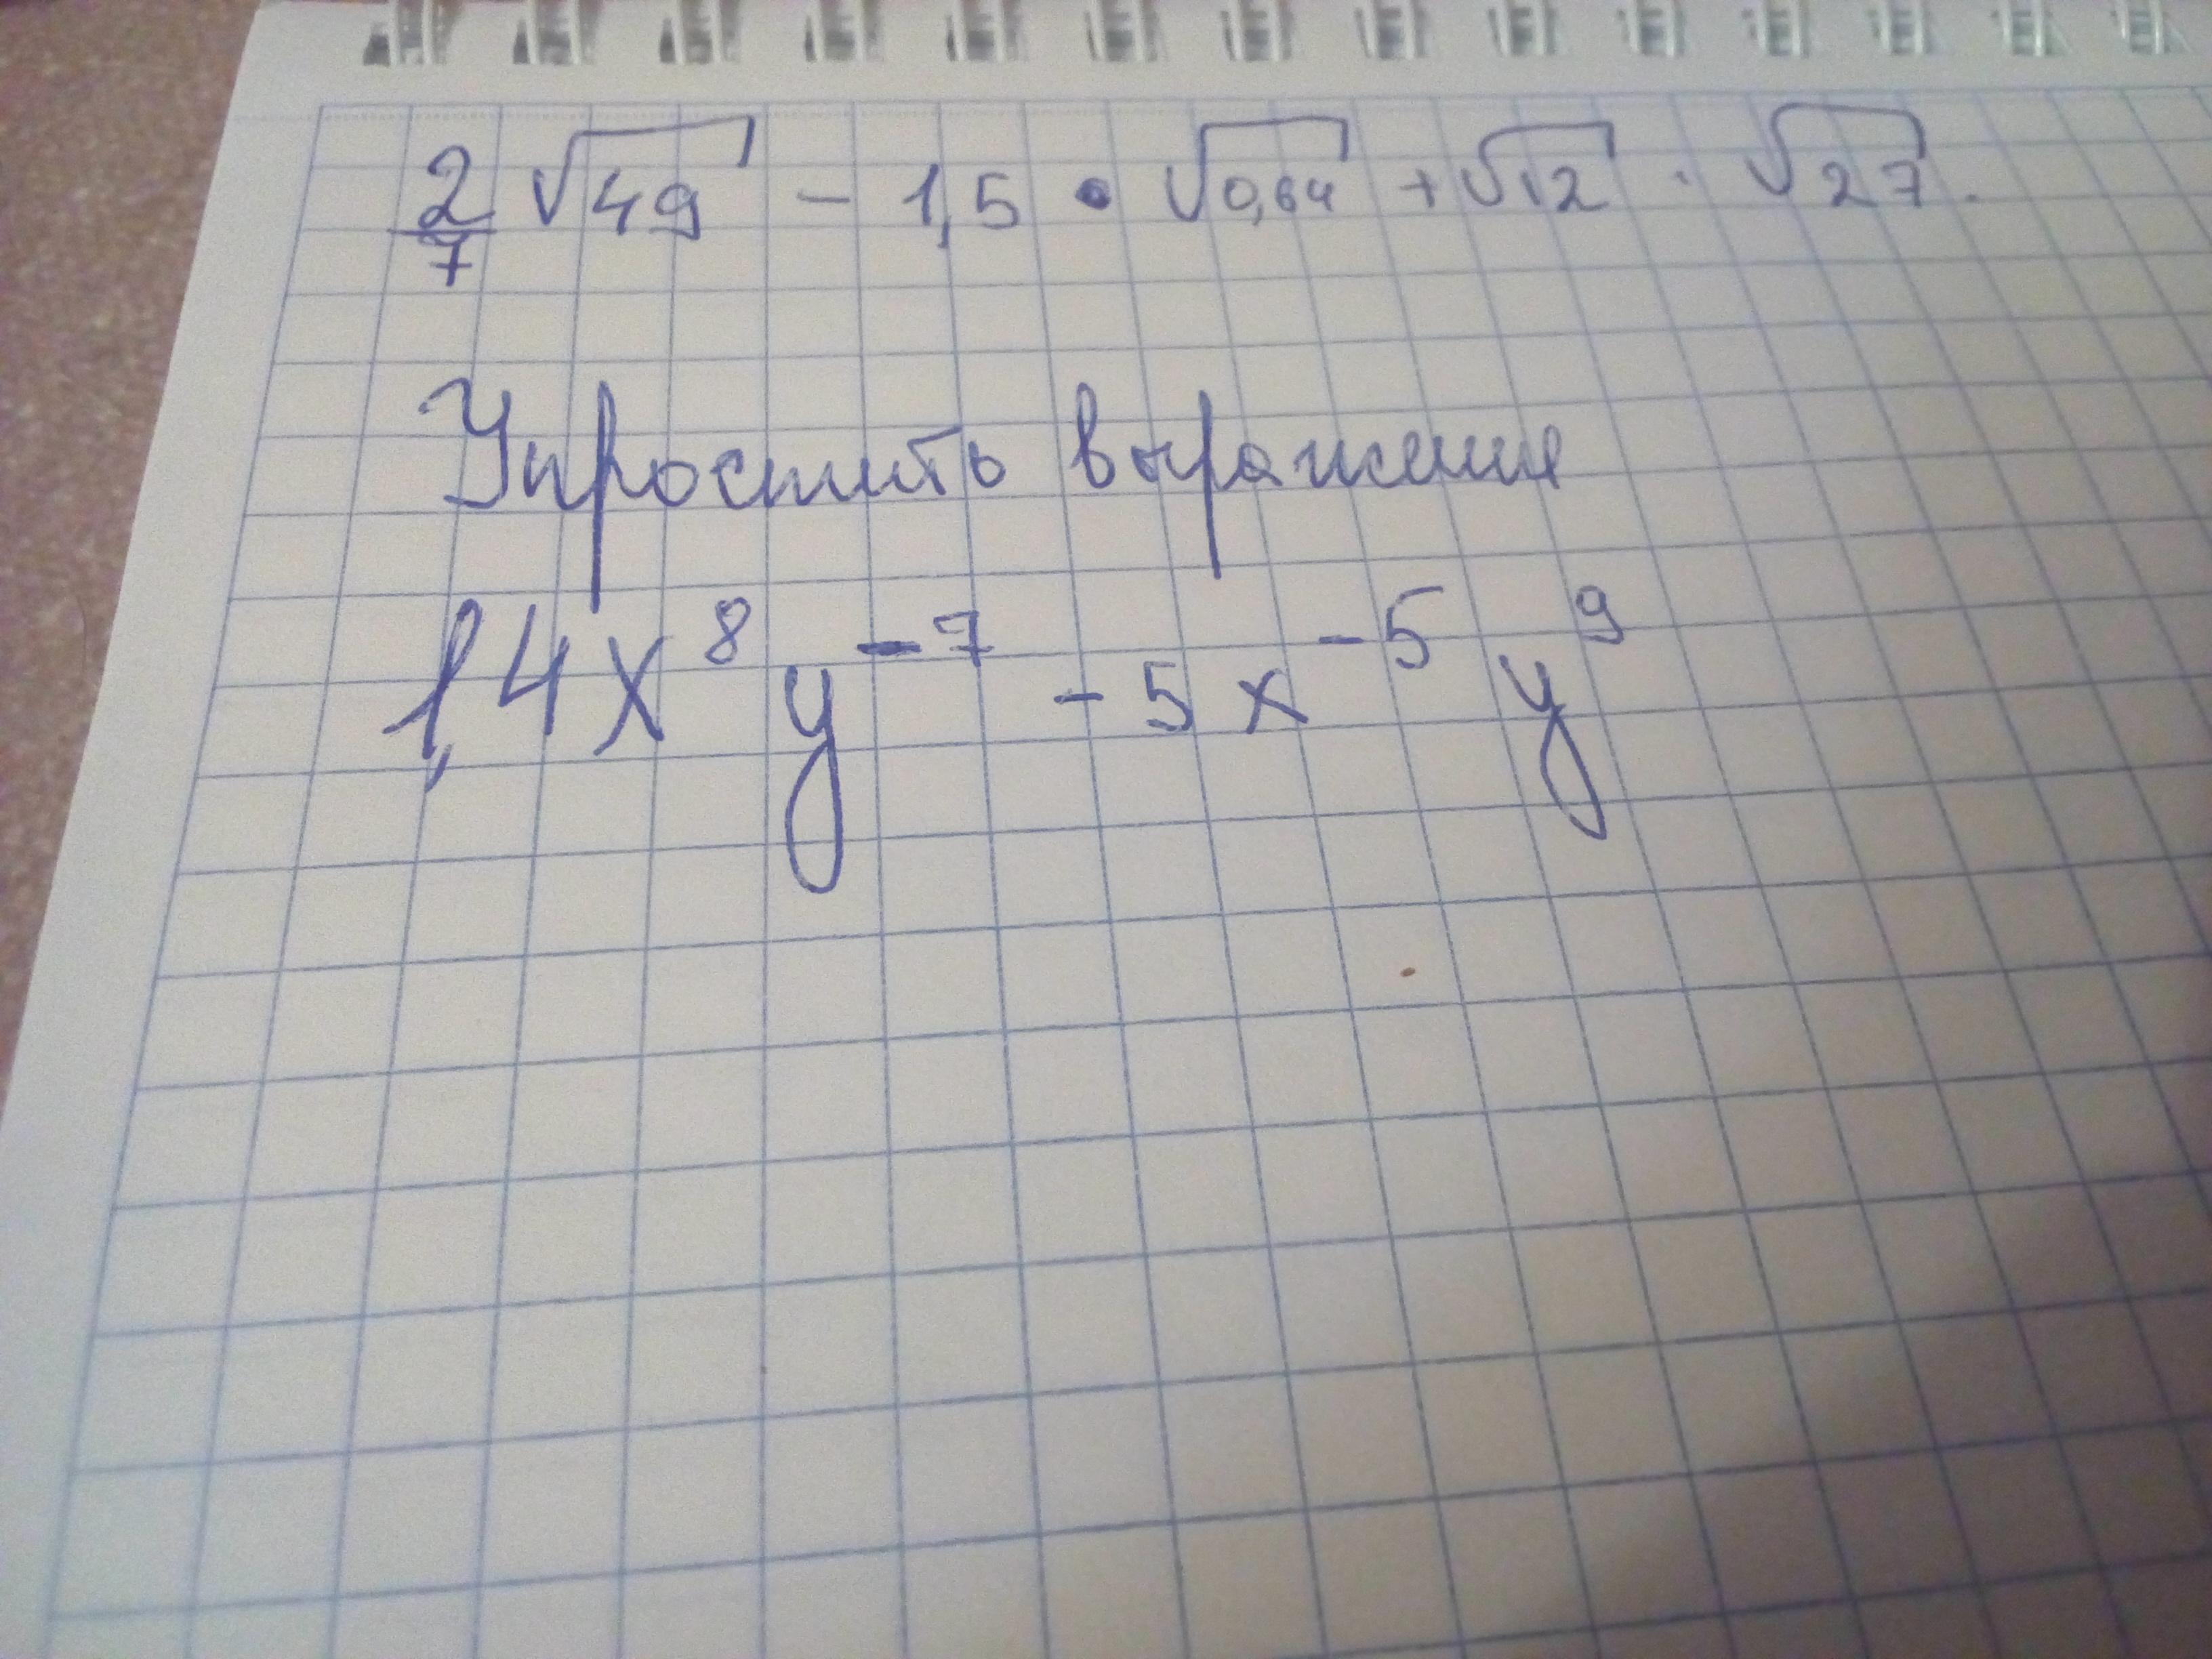 2/7 √49 − 1,5 • √0,64 + √12 · √27.
Упростить выражение
1,4x⁸y⁻⁷ - 5x⁻⁵y⁹